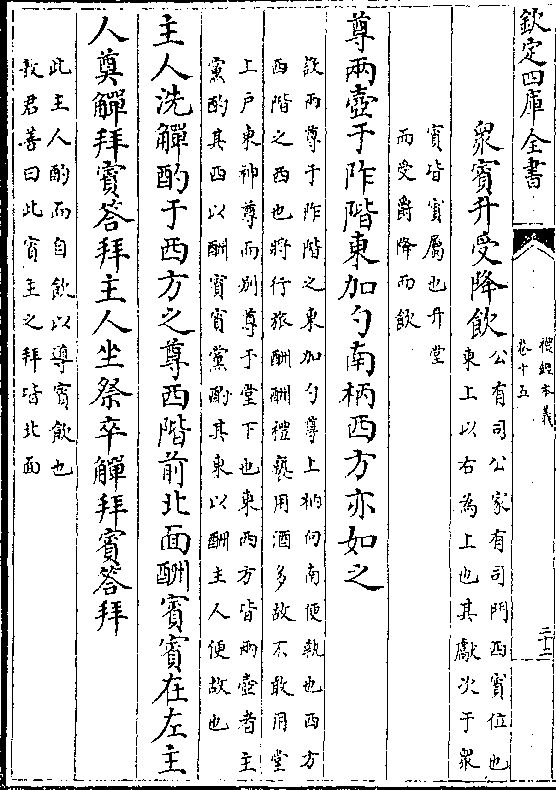 欽定四庫全書
禮經本義
卷十五
二十二
衆賓升受降飲
公有司公家有司門西賓位也
東上以右為上也其獻次于衆
賓皆賓屬也升堂
而受爵降而飲
尊兩壺于阼階東加勺南柄西方亦如之
設兩尊于阼階之東加勺尊上柄向南便執也西方
西階之西也將行旅酬酬禮褻用酒多故不敢用堂
上戶東神尊而别尊于堂下也東西方皆兩壺者主
黨酌其西以酬賓賓黨酌其東以酬主人便故也
主人洗觶酌于西方之尊西階前北面酬賓賓在左主
人奠觶拜賓答拜主人坐祭卒觶拜賓答拜
此主人酌而自飲以導賓飲也
敖君善曰此賓主之拜皆北面